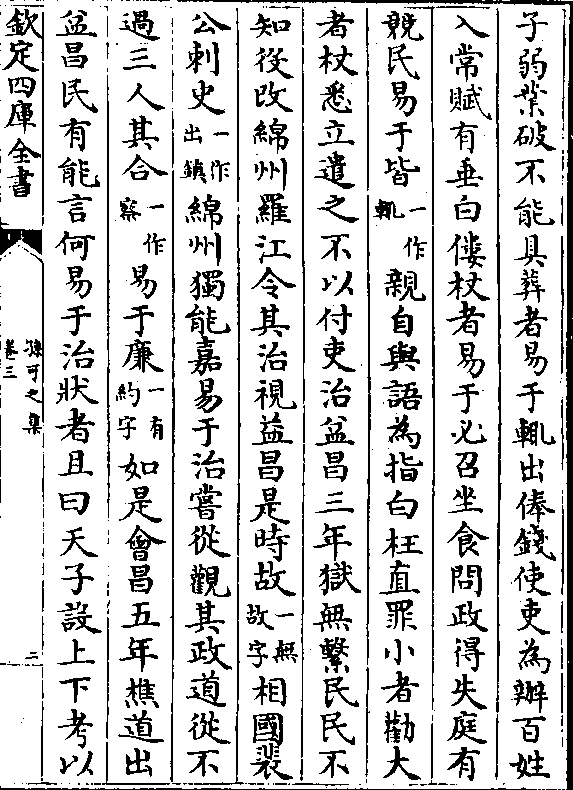 子弱業破不能具葬者易于輒出俸錢使吏為辦百姓
入常賦有垂白僂杖者易于必召坐食問政得失庭有
競民易于皆一作輒親自與語為指白枉直罪小者勸大
者杖悉立遣之不以付吏治益昌三年獄無繫民民不
知役改綿州羅江令其治視益昌是時故一無故字相國裴
公刺史一作出鎮綿州獨能嘉易于治嘗從觀其政道從不
過三人其合一作察易于廉一有約字如是會昌五年樵道出
益昌民有能言何易于治狀者且曰天子設上下考以
欽定四庫全書
孫可之集
卷三
二